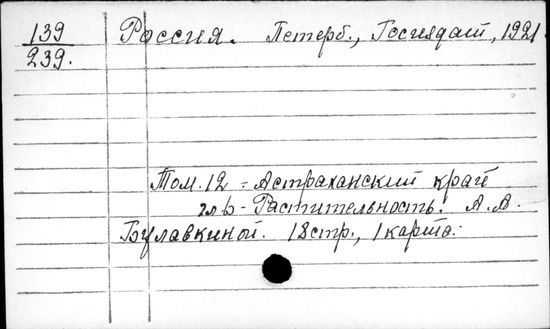 139
239.
Россия. Петерб., Госиздат, 1921
Том. 12 - Астраханский край
гл b - Растительность. А. А.
Булавкиной. 18 стр., 1 карта.